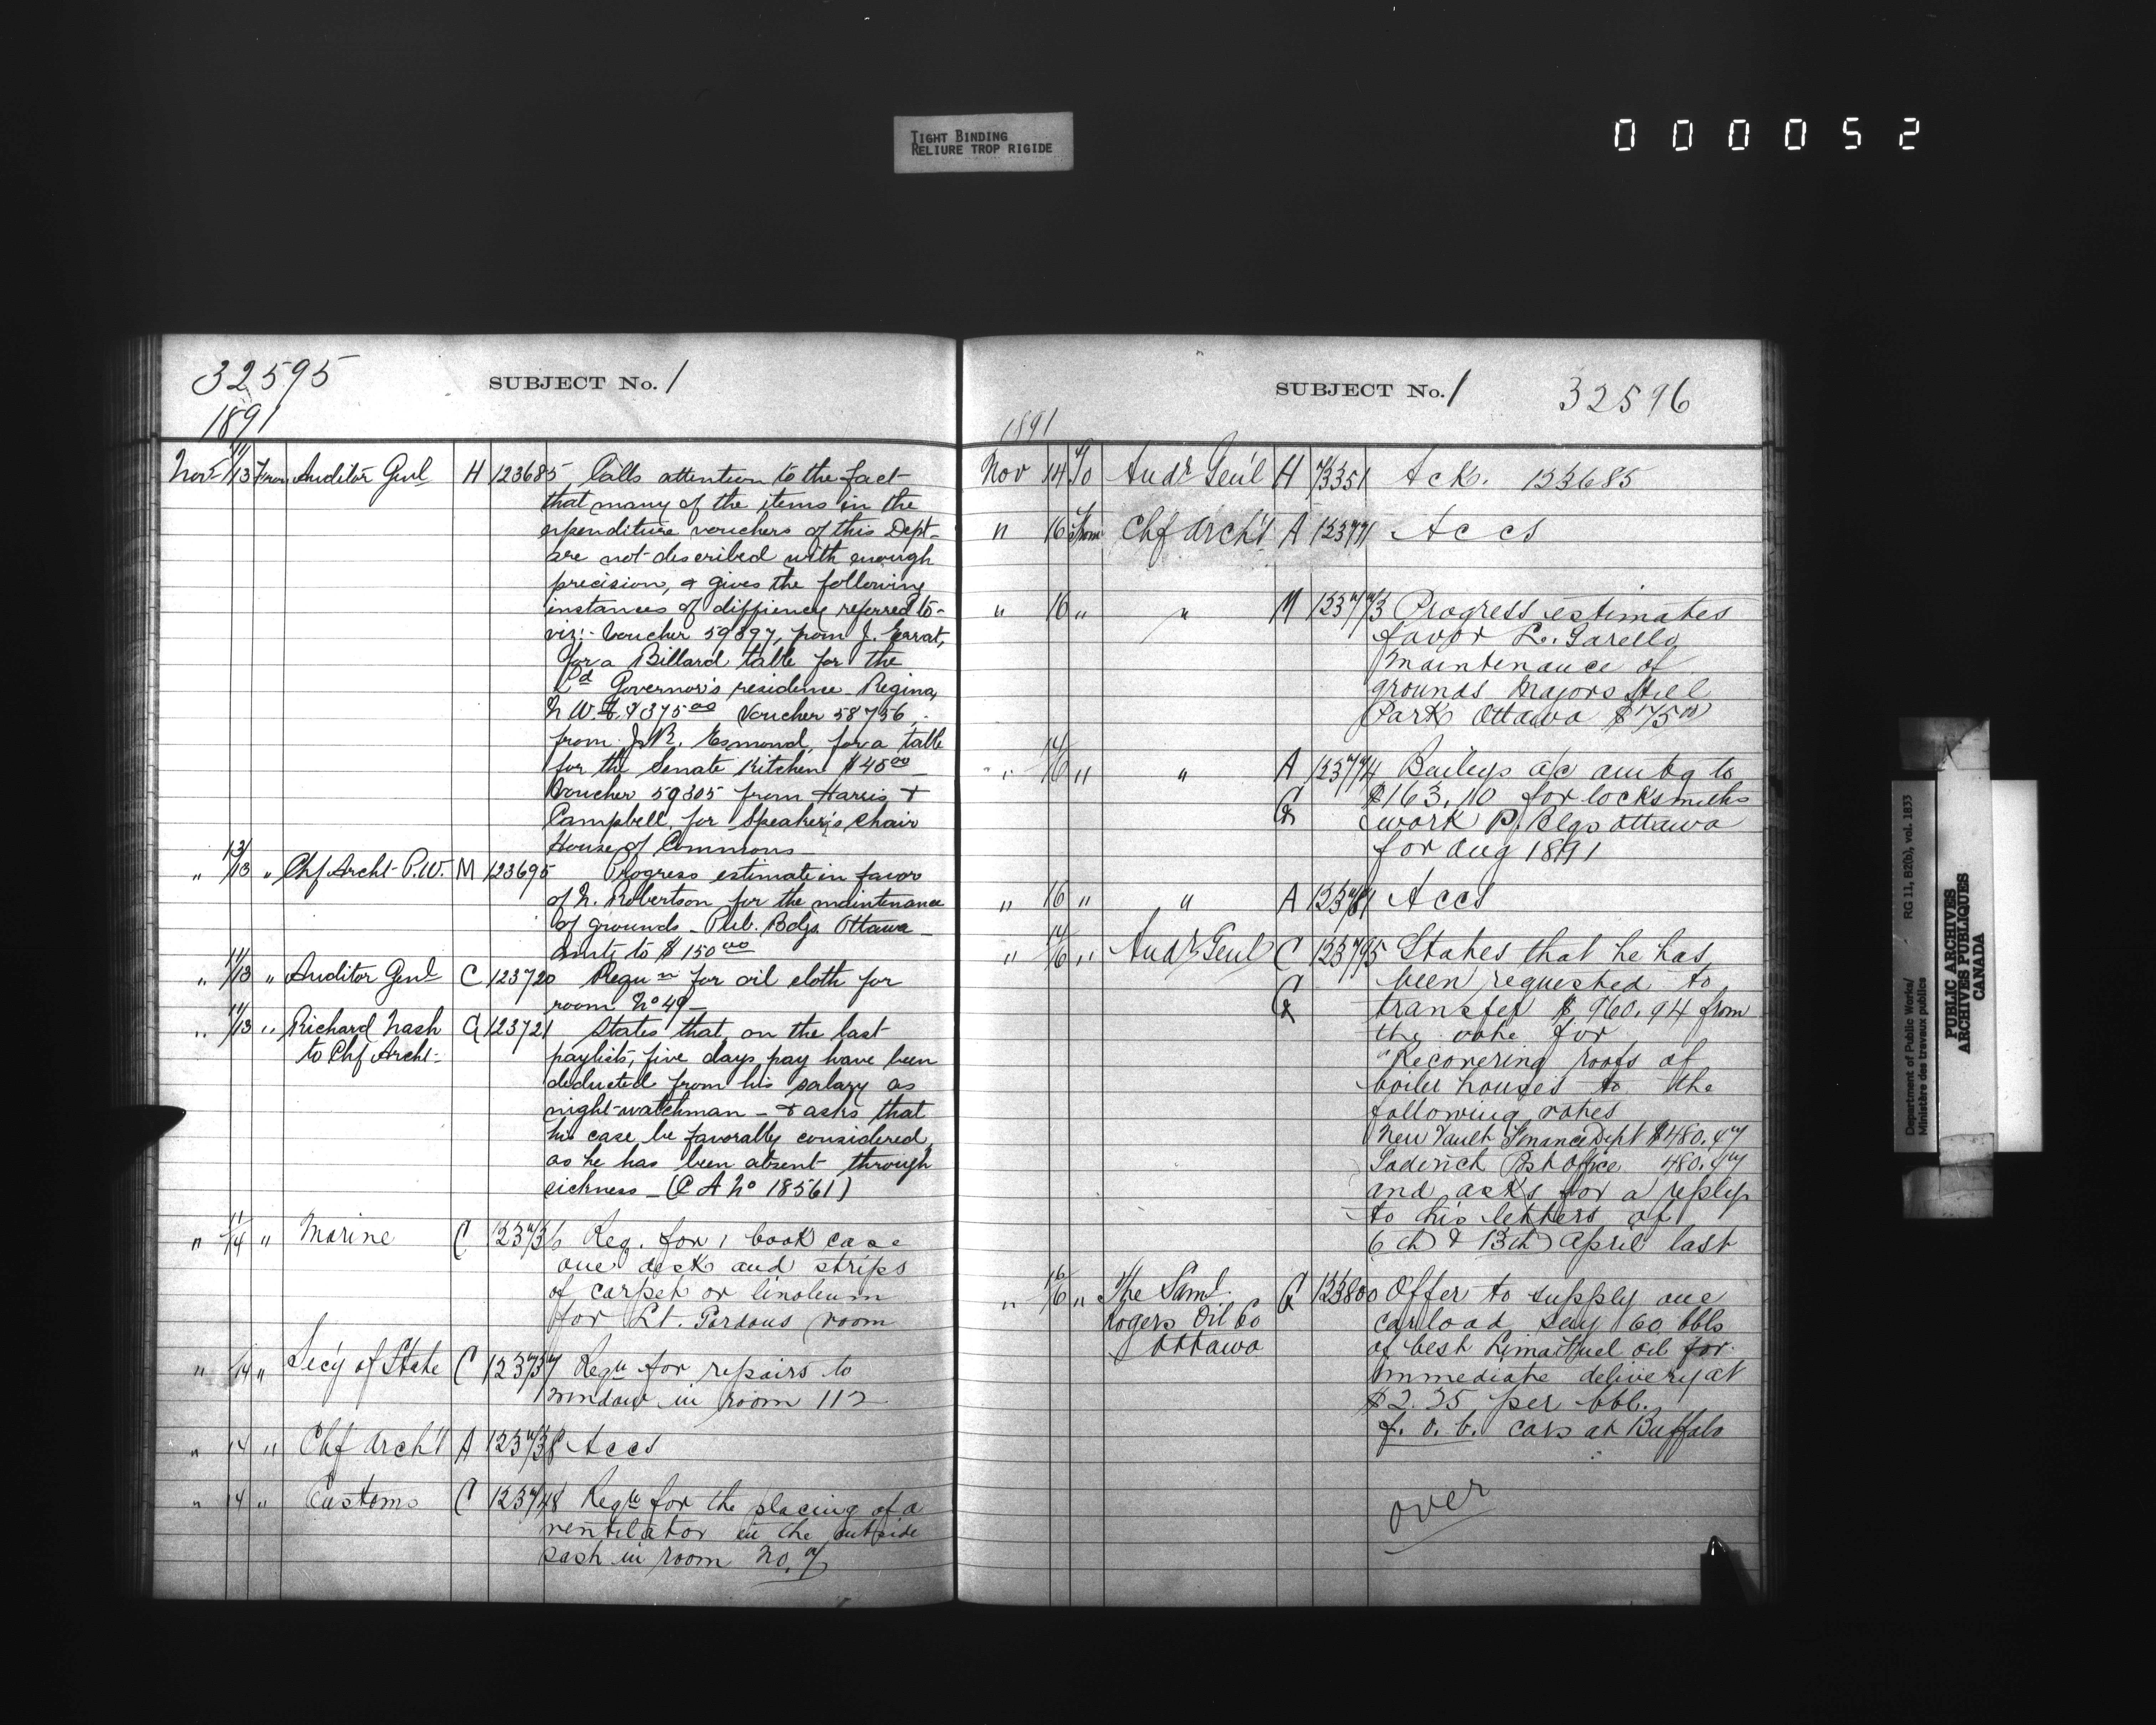 TIGHT BINDING
RELIURE TROP RIGIDE
000052
32595
SUBJECT No. 1
1891
Novr 11/13 From Auditor Genl H 123685 Calls attention to the fact
that many of the items in the
expenditure vouchers of this Dept.
are not described with enough
precision, & gives the following
instances of diffiency referred to-
viz:- Voucher 59397, from J.
for a Billard table for the
Governor's residence Regina,
N.W.T. $375 00 Voucher 58756,
from J.R. Esmond, for a table
for the Senate Kitchen $45 00
Voucher 59305 from Harris &
Campbell, for Speaker's Chair
House of Commons
" 13/13 " Chf Archt P.W. M 123695 Progress estimate in favor
of N. Robertson for the maintenance
of grounds - Pub. Bdgs Ottawa -
amts to $150 00
" 11/13 " Auditor Genl C 123720 Requn for oil cloth for
room No 49 -
" 11/13 " Richard Nash G 123721 States that, on the last
to Chf Archt-
paylists, five days pay have been
deducted from his salary as
night-watchman - & asks that
his case be favorally considered,
as he has been absent through
sickness - (C A No 18561)
" 11/14 " Marine C 123736 Req. for 1 book case
one desk and strips
of carpet or linoleum
for Lt. Gordons room
" 14 " Secy of State C 123737 Requ for repairs to
window in room 112
" 14 " Chf Arch't A 123738 Accs
" 14 " Customs C 123748 Requ for the placing of a
ventilator in the outside
sash in room No. 7
SUBJECT No. 1
32596
1891
Nov 14 To Audr Genl H 73351 Ack. 123685
" 16 From Chf Arch't A 123771 Accs
" 16 " " M 123773 Progress estimates
favor
maintenance of
grounds Majors Hill
Park Ottawa $75 00
" 14/16 " " A 123774 Baileys a/c amtg to
G $163.10 for locksmiths
work P. Blgs Ottawa
for Aug 1891
" 16 " " A 123781 Accs
" 14/16 " Audr Genl C 123795 States that he has
been requested to
G transfer $960.94 from
the vote for
"Recovering roofs of
boiler houses to the
following votes
New Vault Finance Dept $480.47
Goderich Post Office 480.47
and asks for a reply
to his letters of
6th & 13th April last
" 16/16 " The Saml. G 123800 Offer to supply one
Rogers Oil Co
Ottawa
carload say 60 bbls
of best Lima Fuel oil for
immediate delivery at
$2.25 per bbl.
f.o.b. cars at Buffalo
over
Department of Public Works/ RG 11, B2(b), vol. 1833
Ministère des travaux publics
PUBLIC ARCHIVES
ARCHIVES PUBLIQUES
CANADA